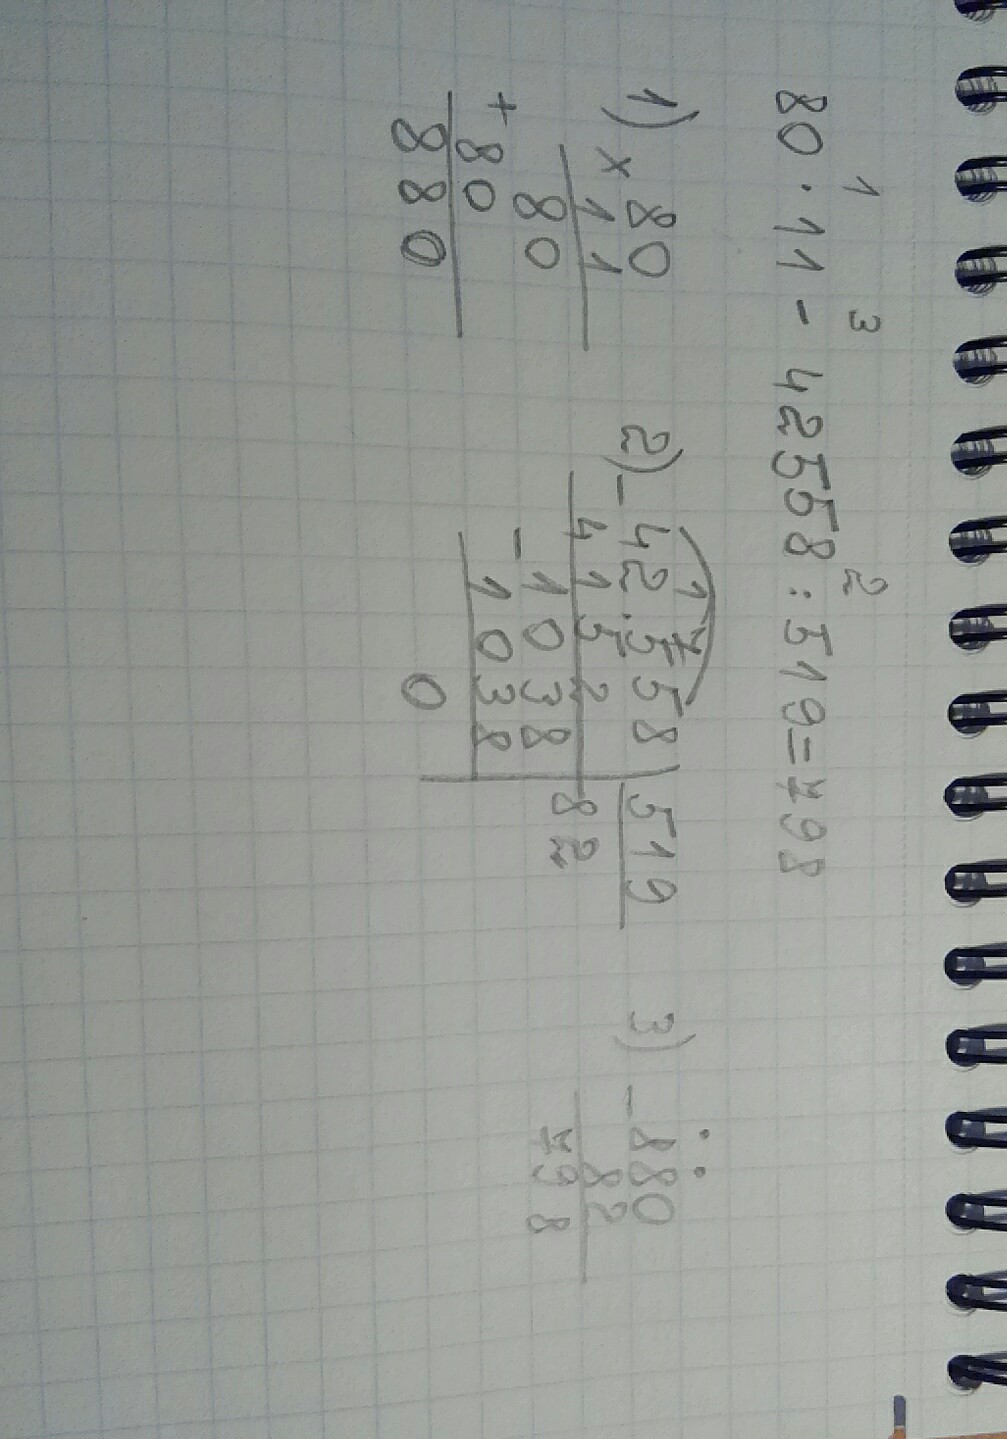 1 3 2
80 · 11 - 42558 : 519 = 798
1) × 80
11
80
+ 80
880
2) - 42558 | 519
4152 82
- 1038
1038
0
3) - 880
82
798